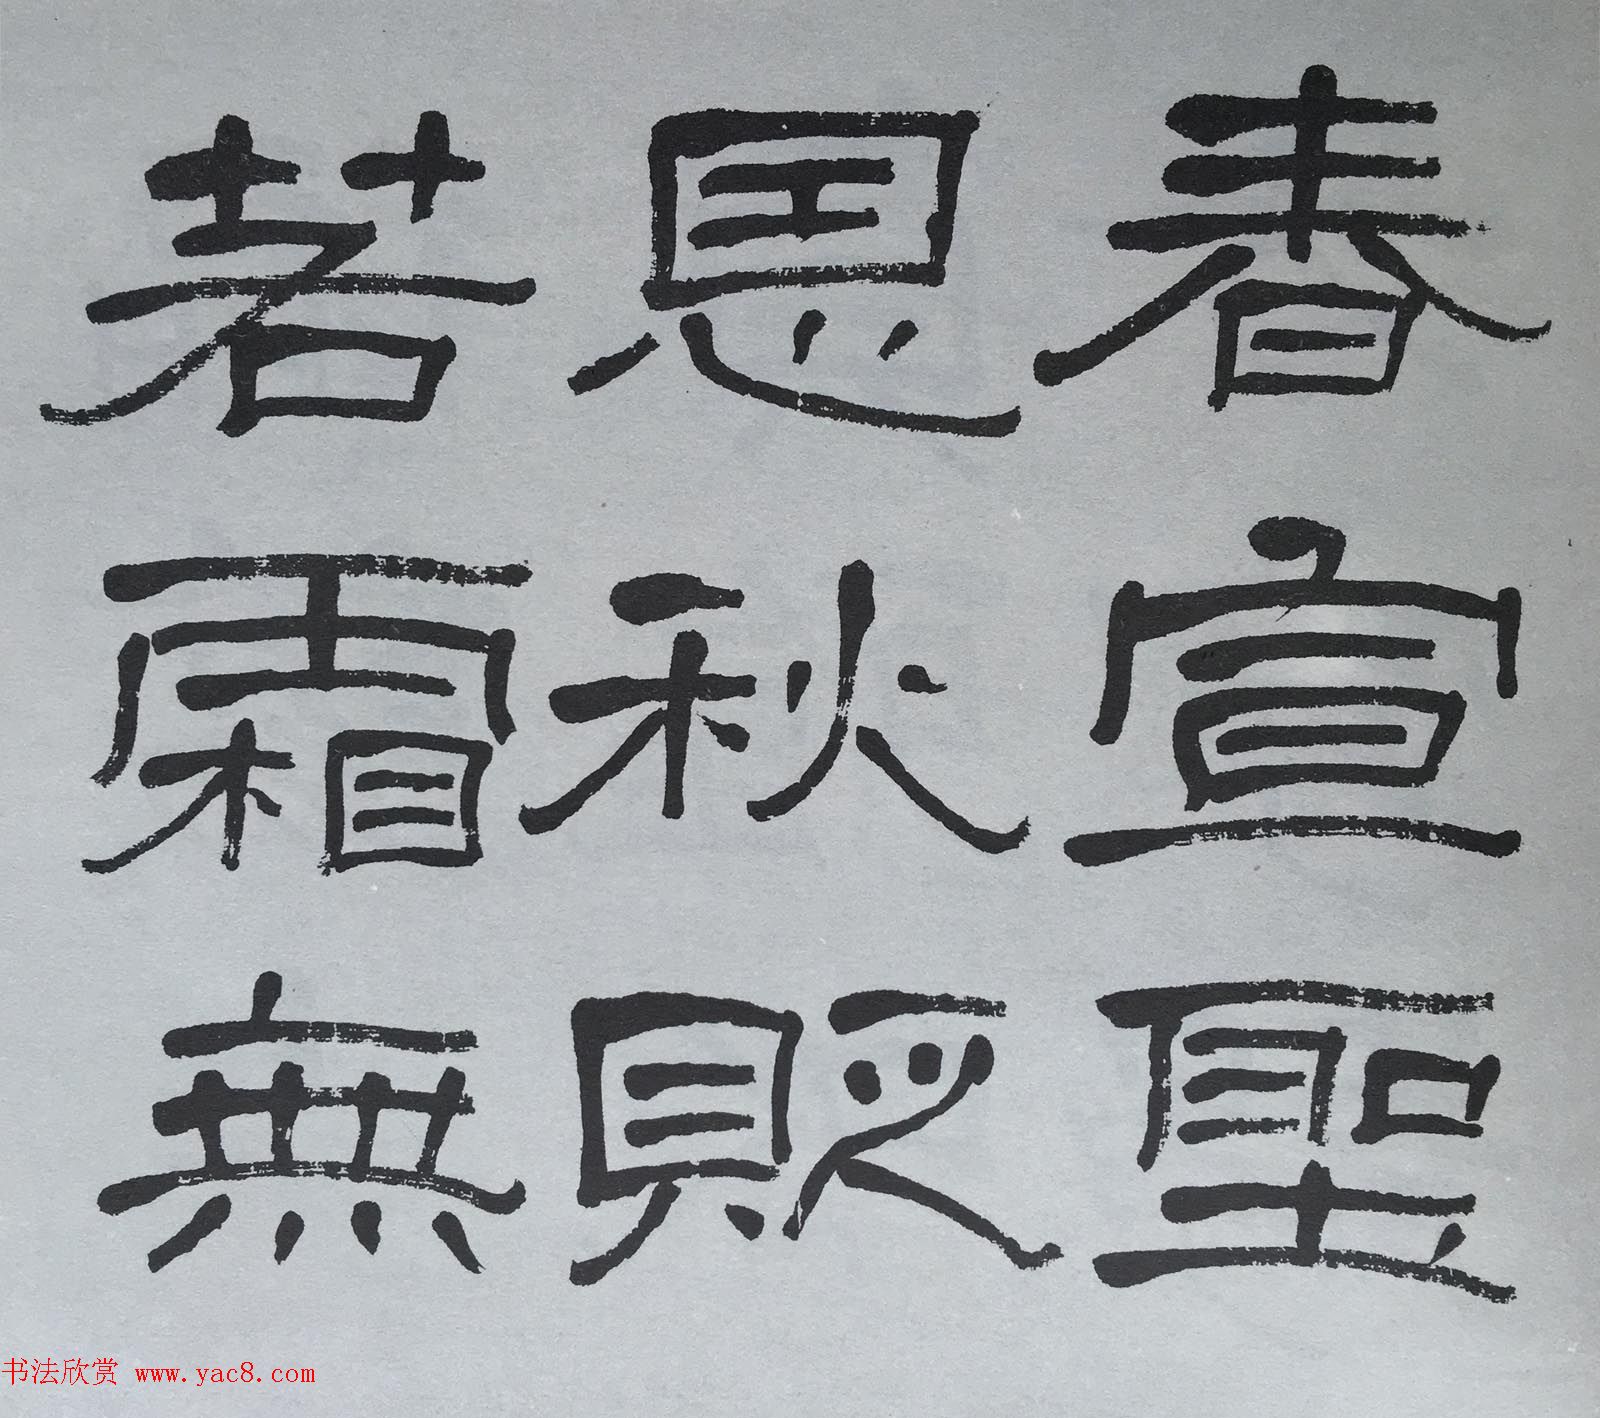 春宣聖
恩秋貶
若霜無
书法欣赏 www.yac8.com